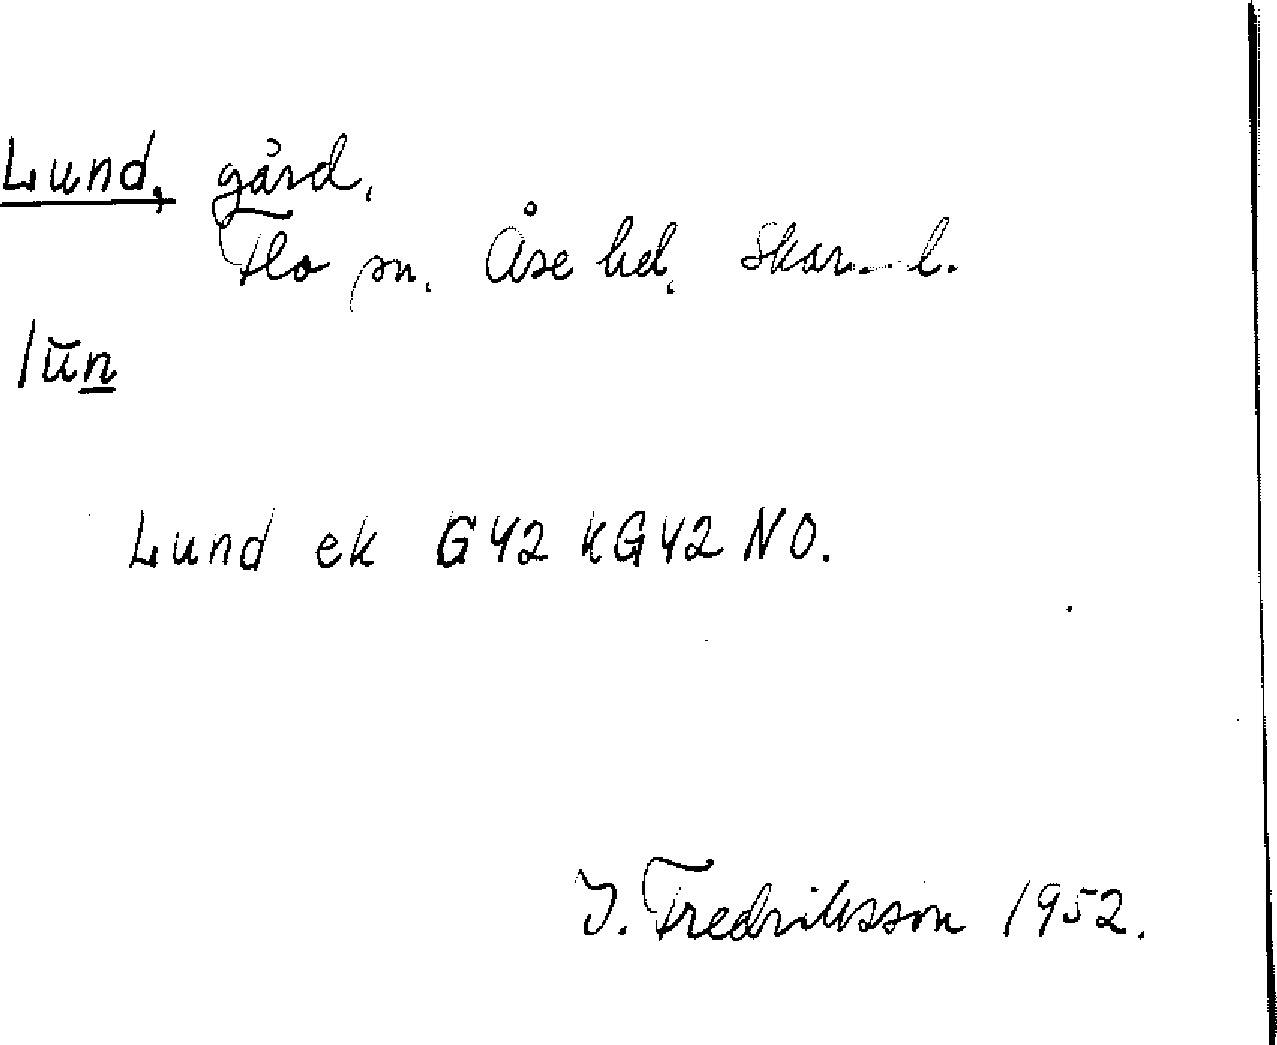 Lund, gård.
Flo sn. Åse hd. Skar. l.
lŭn
Lund ek G42 KG42 NO.
I. Fredriksson 1952.